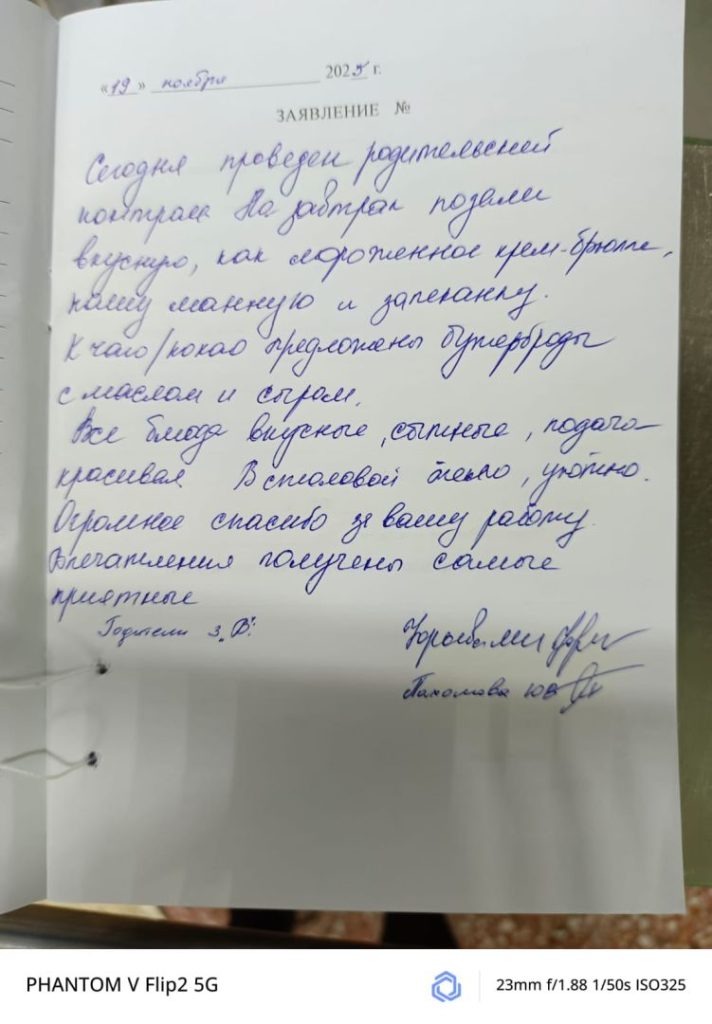 «19» ноября 2025 г.
ЗАЯВЛЕНИЕ №
Сегодня проведен родительский
контроль На завтрак подали
вкусную, как мороженное крем-брюле,
кашу манную и запеканку.
К чаю/какао предложены бутерброды
с маслом и сыром.
Все блюда вкусные, сытные, подача
красивая В столовой тепло, уютно.
Огромное спасибо за вашу работу.
Впечатления получены самые
приятные
Родители 3 "В".
Пахомова ЮВ
PHANTOM V Flip2 5G
23mm f/1.88 1/50s ISO325